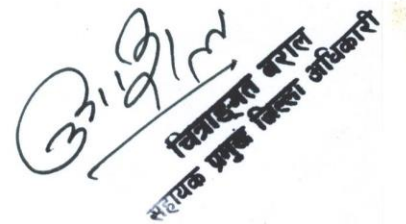 चित्राङ्गमत बराल
सहायक प्रमुख जिल्ला अधिकारी